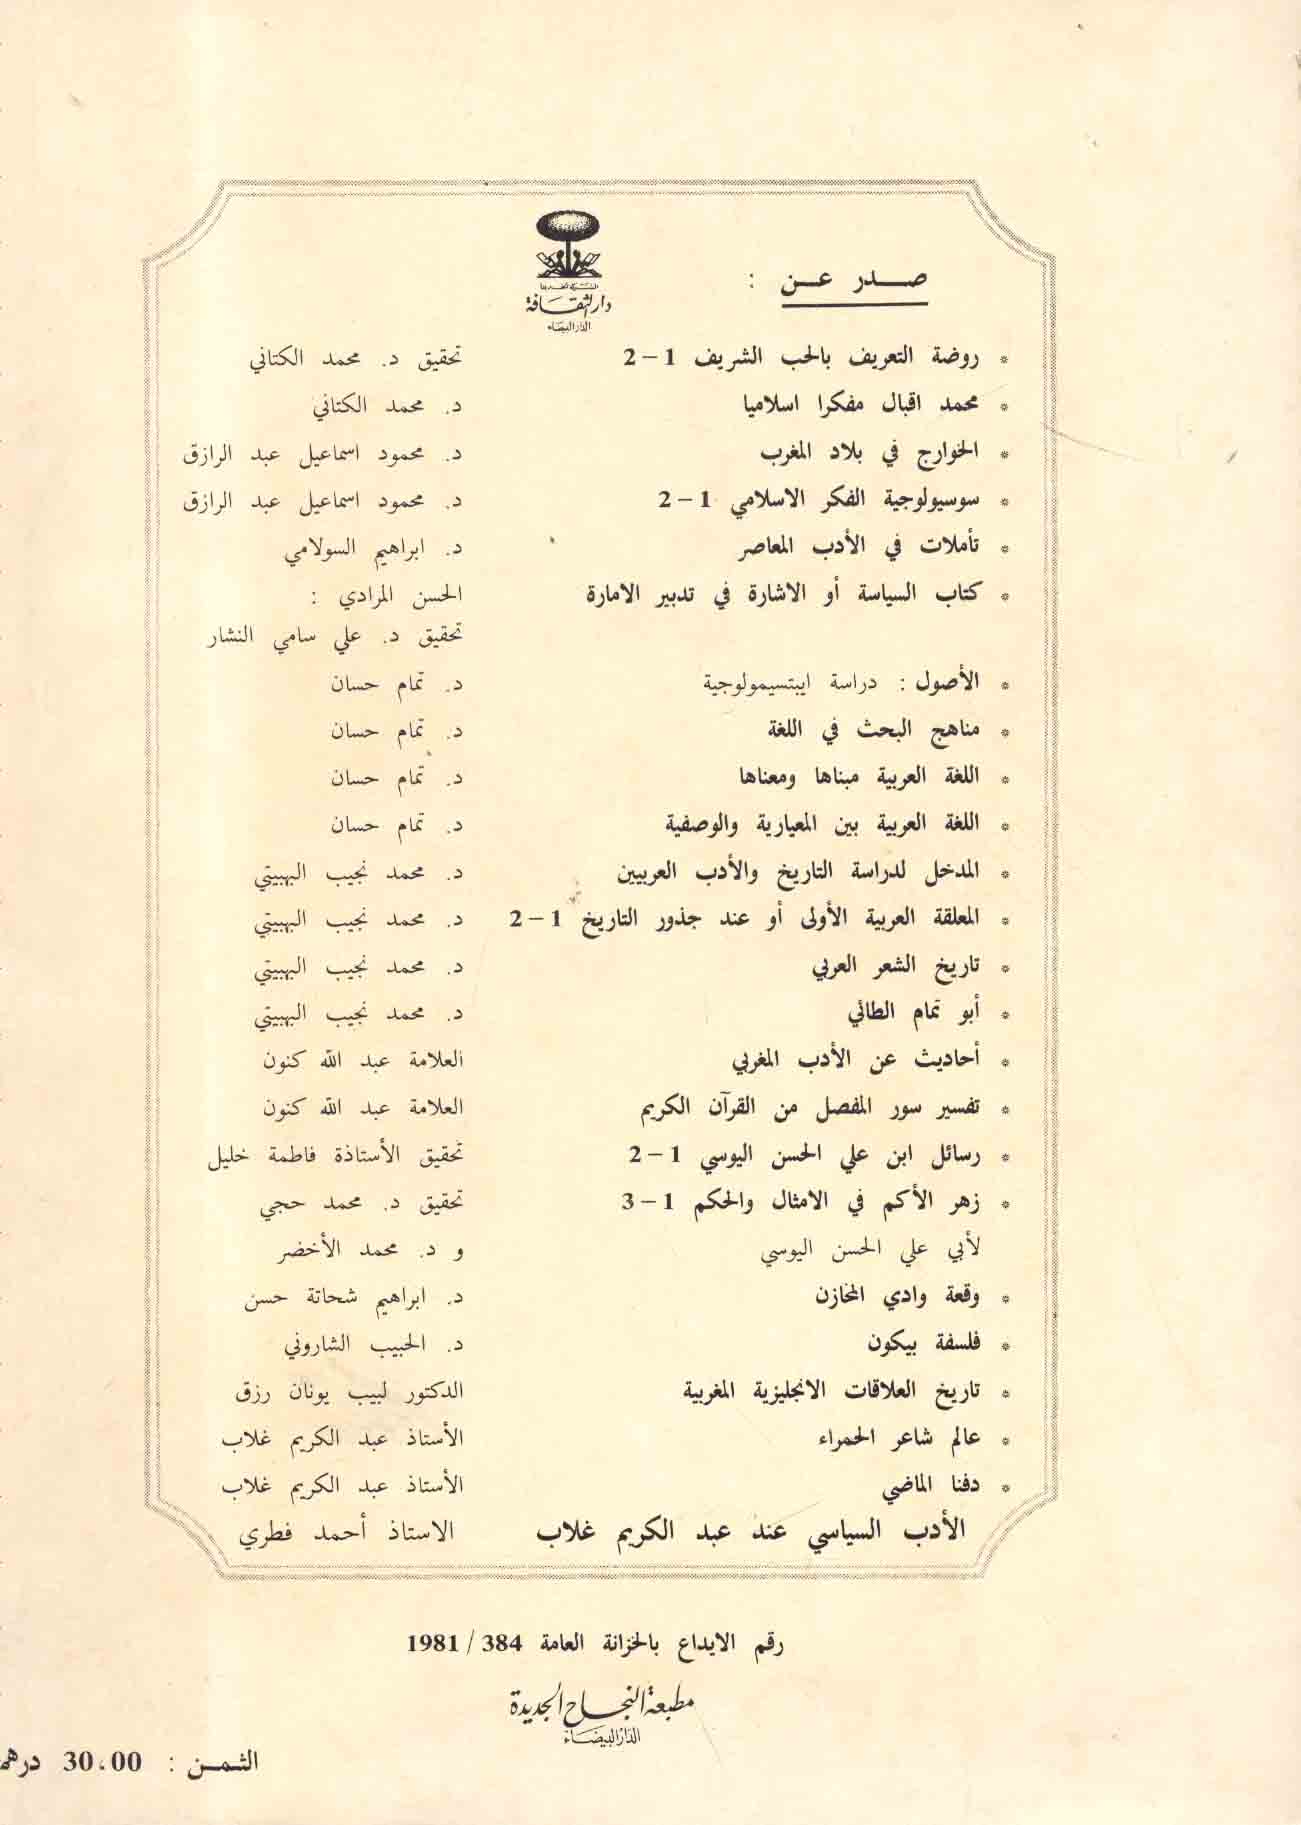 صدر عن :
دار الثقافة
الدار البيضاء
* روضة التعريف بالحب الشريف 1 – 2 تحقيق د. محمد الكتاني
* محمد اقبال مفكرا اسلاميا د. محمد الكتاني
* الخوارج في بلاد المغرب د. محمود اسماعيل عبد الرازق
* سوسيولوجية الفكر الاسلامي 1 – 2 د. محمود اسماعيل عبد الرازق
* تأملات في الأدب المعاصر د. ابراهيم السولامي
* كتاب السياسة أو الاشارة في تدبير الامارة الحسن المرادي :
تحقيق د. علي سامي النشار
* الأصول : دراسة ايبتسيمولوجية د. تمام حسان
* مناهج البحث في اللغة د. تمام حسان
* اللغة العربية مبناها ومعناها د. تمام حسان
* اللغة العربية بين المعيارية والوصفية د. تمام حسان
* المدخل لدراسة التاريخ والأدب العربيين د. محمد نجيب البهبيتي
* المعلقة العربية الأولى أو عند جذور التاريخ 1 – 2 د. محمد نجيب البهبيتي
* تاريخ الشعر العربي د. محمد نجيب البهبيتي
* أبو تمام الطائي د. محمد نجيب البهبيتي
* أحاديث عن الأدب المغربي العلامة عبد الله كنون
* تفسير سور المفصل من القرآن الكريم العلامة عبد الله كنون
* رسائل ابن علي الحسن اليوسي 1 – 2 تحقيق الأستاذة فاطمة خليل
* زهر الأكم في الامثال والحكم 1 – 3 تحقيق د. محمد حجي
لأبي علي الحسن اليوسي و د. محمد الأخضر
* وقعة وادي المخازن د. ابراهيم شحاتة حسن
* فلسفة بيكون د. الحبيب الشاروني
* تاريخ العلاقات الانجليزية المغربية الدكتور لبيب يونان رزق
* عالم شاعر الحمراء الأستاذ عبد الكريم غلاب
* دفنا الماضي الأستاذ عبد الكريم غلاب
الأدب السياسي عند عبد الكريم غلاب الاستاذ أحمد فطري
رقم الايداع بالخزانة العامة 384 / 1981
مطبعة النجاح الجديدة
الدار البيضاء
الثمن : 30،00